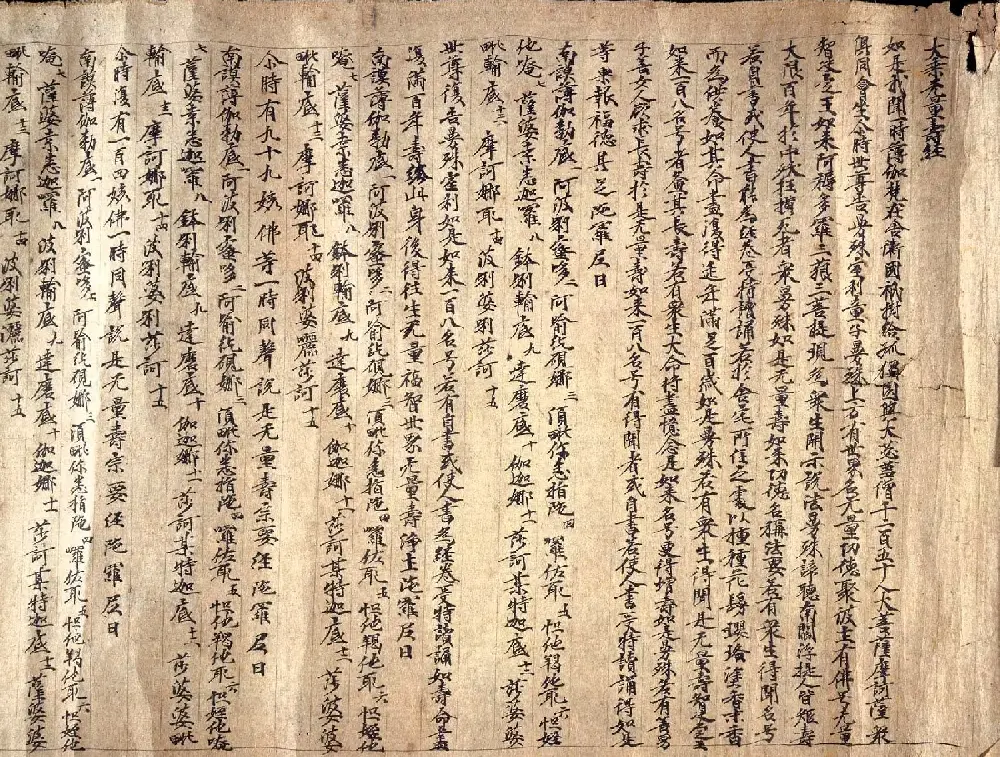 大乘无量壽經
如是我聞一時薄伽梵在舍衛國祇樹給孤獨園與大苾芻僧千二百五十人大菩薩摩訶薩眾
俱同會坐尒時世尊告曼殊室利童子曼殊上方有世界名无量功德聚彼土有佛号无量
智決定王如來阿耨多羅三藐三菩提現為眾生開示說法曼殊諦聽南閻浮提人皆短壽
大限百年於中夭枉橫死者眾曼殊如是无量壽如來功德名稱法要若有眾生得聞名号
若自書或使人書能為經卷受持讀誦若於舍宅所住之處以種種花鬘瓔珞塗香末香
而為供養如其命盡復得延年滿足百歲如是曼殊若有眾生得聞是无量壽智決定王
如來一百八名号者益其長壽若有眾生大命將盡憶念是如來名号更得增壽如是曼殊若有善男
子善女人欲求長壽於是无量壽如來一百八名号有得聞者或自書若使人書受持讀誦得如是
等果報福德具足陁羅尼曰
南謨薄伽勃底一阿波唎蜜哆二阿喻紇硯娜三須毗你悉指陁四囉佐耶五怛他羯他耶六怛姪
他唵七薩婆桑悉迦囉八鉢唎輸底九達磨底十伽迦娜十一莎訶某特迦底十二莎婆婆
毗輸底十三摩訶娜耶十四波唎婆唎莎訶十五
世尊復告曼殊室利如是如來一百八名号若有自書或使人書為經卷受持讀誦如壽命盡
復滿百年壽終此身後得往生无量福智世界无量壽淨土陁羅尼曰
南謨薄伽勃底一阿波唎蜜哆二阿喻紇硯娜三須毗你悉指陁四囉佐耶五怛他羯他耶六怛姪他
唵七薩婆桑悉迦囉八鉢唎輸底九達磨底十伽迦娜十一莎訶某特迦底十二莎婆婆
毗輸底十三摩訶娜耶十四波唎婆麗莎訶十五
尒時有九十九姟佛等一時同聲說是无量壽宗要經陁羅尼曰
南謨薄伽勃底一阿波唎蜜哆二阿喻紇硯娜三須毗你悉指陁四囉佐耶五怛他羯他耶六怛姪他唵
七薩婆桑悉迦囉八鉢唎輸底九達磨底十伽迦娜十一莎訶某特迦底十二莎婆婆毗
輸底十三摩訶娜耶十四波唎婆唎莎訶十五
尒時復有一百四姟佛一時同聲說是无量壽宗要經陁羅尼曰
南謨薄伽勃底一阿波唎蜜哆二阿喻紇硯娜三須毗你悉指陁四囉佐耶五怛他羯他耶六怛姪他
唵七薩婆桑悉迦囉八波唎輸底九達磨底十伽迦娜十一莎訶某特迦底十二薩婆婆
毗輸底十三摩訶娜耶十四波唎婆麗莎訶十五